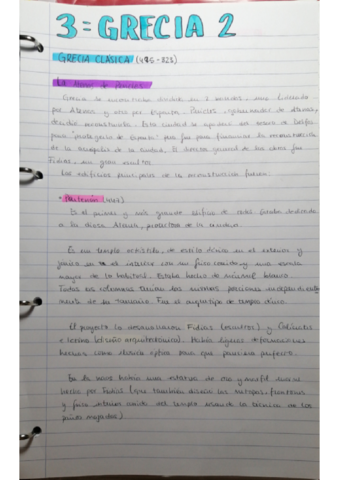 3 = GRECIA 2
GRECIA CLÁSICA
La Atenas de Pericles
Grecia se encontraba dividida en 2 bandos, uno liderado
por Atenas y otro por Esparta. Pericles, gobernador de Atenas,
decidió reconstruirla. Esta ciudad se apoderó del tesoro de Delfos
para "protegerlo de Esparta" pero fue para financiar la reconstrucción
de la acrópolis de la ciudad. El director general de las obras fue
Fidias, un gran escultor.
Los edificios principales de la reconstrucción fueron:
• Partenón
Es el primer y más grande edificio de estos. Estaba dedicado
a la diosa Atenea, protectora de la ciudad.
Es un templo octástilo, de estilo dórico en el exterior y
jónico en el interior con un friso corrido, y una escala
mayor de la habitual. Estaba hecho de mármol blanco.
Todas sus columnas tenían las mismas
Fue el arquetipo de templo dórico.
El proyecto lo desarrollaron Fidias (escultor) y Calícrates
e Ictino (diseño arquitectónico). Había ligeras deformaciones
hechas como ilusión óptica para que pareciera perfecto.
En la naos había una estatua de oro y marfil
hecha por Fidias (que también diseñó las metopas, frontones
y friso interior corrido del templo usando la técnica de los
paños mojados)